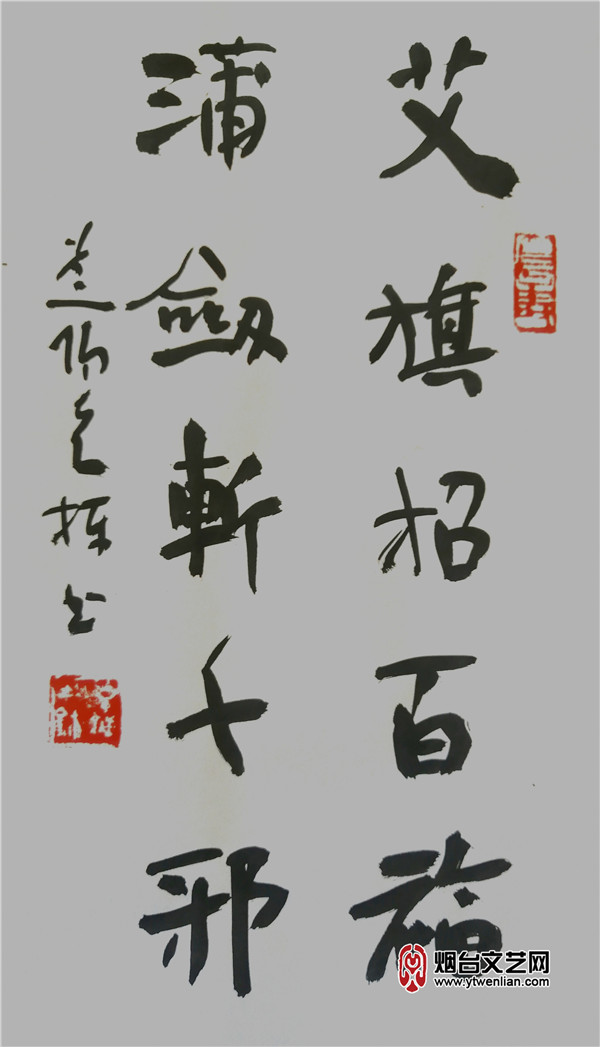 艾旗招百福
蒲劍斬千邪
书
烟台文艺网
www.ytwenlian.com